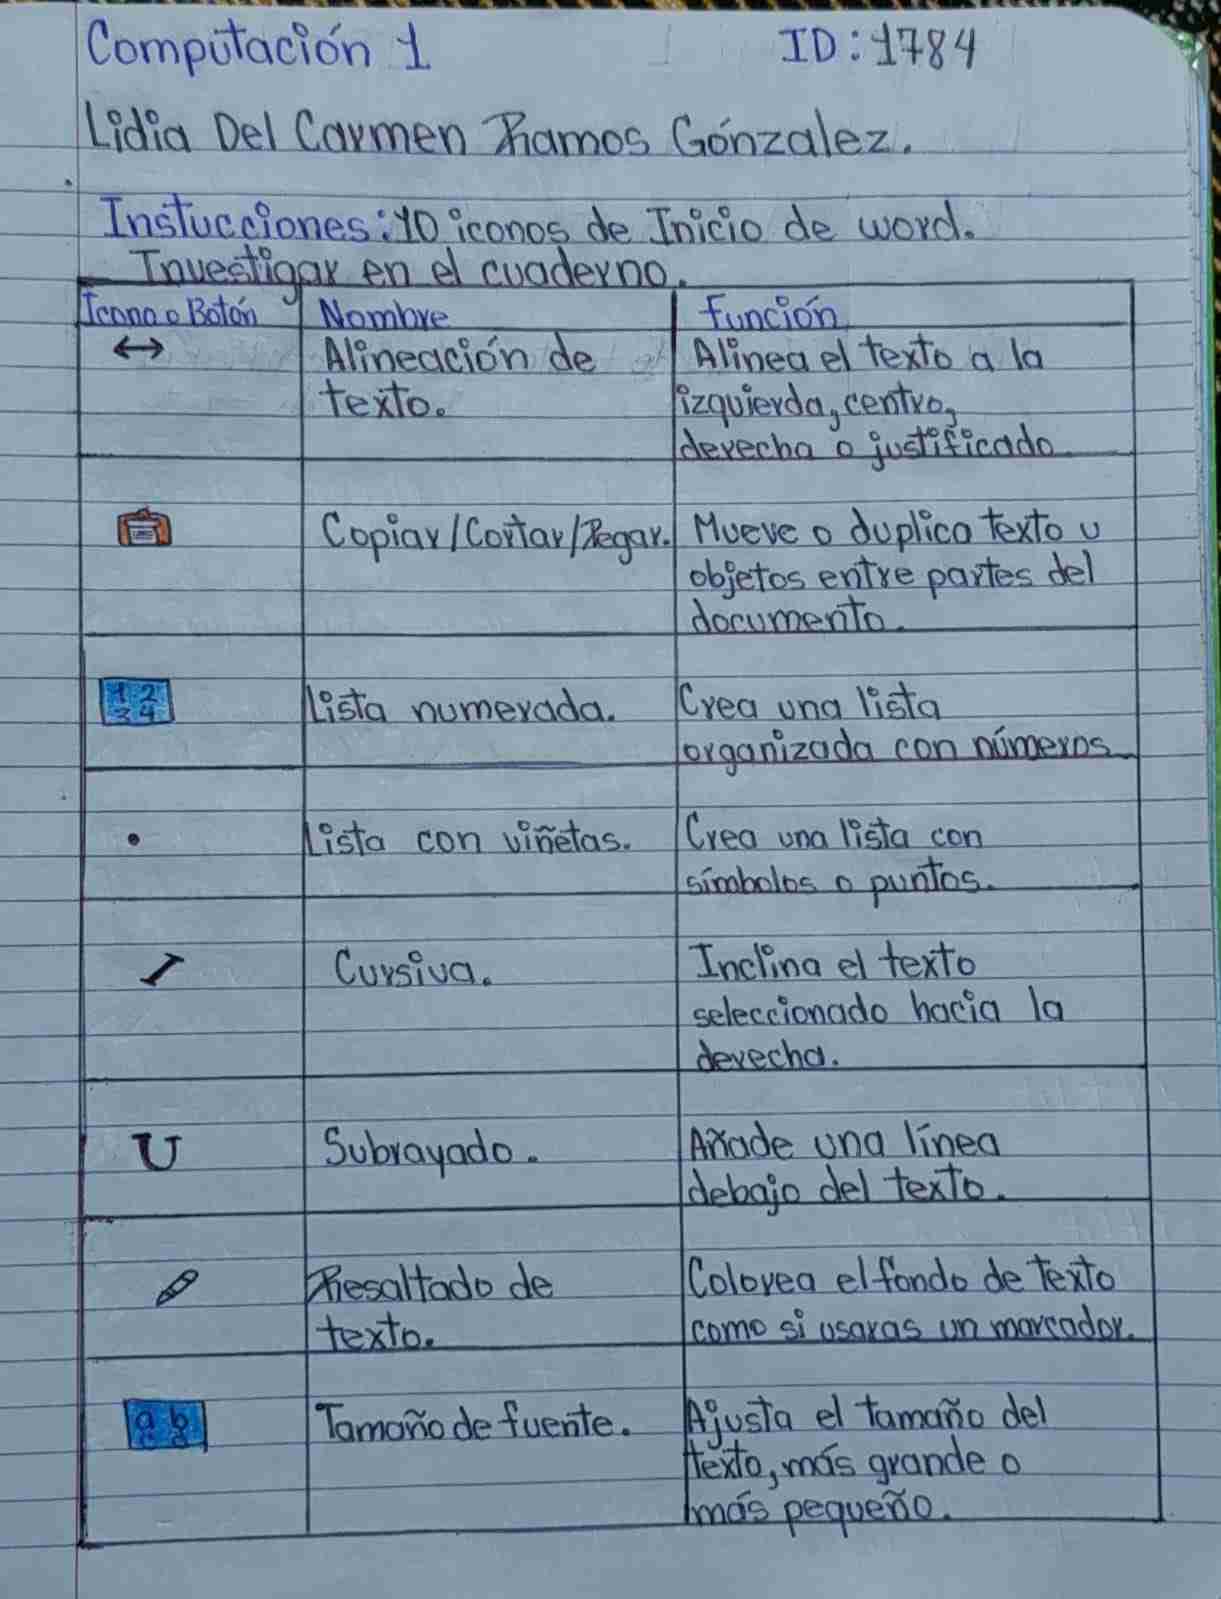 Computación 1 ID: 1784
Lidia Del Carmen Ramos Gónzalez.
Instucciones: 10 iconos de Inicio de word.
Investigar en el cuaderno.
Icono o Botón Nombre Función
↔ Alineación de Alinea el texto a la
texto. izquierda, centro,
derecha o justificado
Copiar/Cortar/Pegar. Mueve o duplica texto u
objetos entre partes del
documento.
1 2 Lista numerada. Crea una lista
3 4 organizada con números
• Lista con viñetas. Crea una lista con
símbolos o puntos.
I Cursiva. Inclina el texto
seleccionado hacia la
derecha.
U Subrayado. Añade una línea
debajo del texto.
Resaltado de Colorea el fondo de texto
texto. como si usaras un marcador.
a b Tamaño de fuente. Ajusta el tamaño del
c d texto, más grande o
más pequeño.